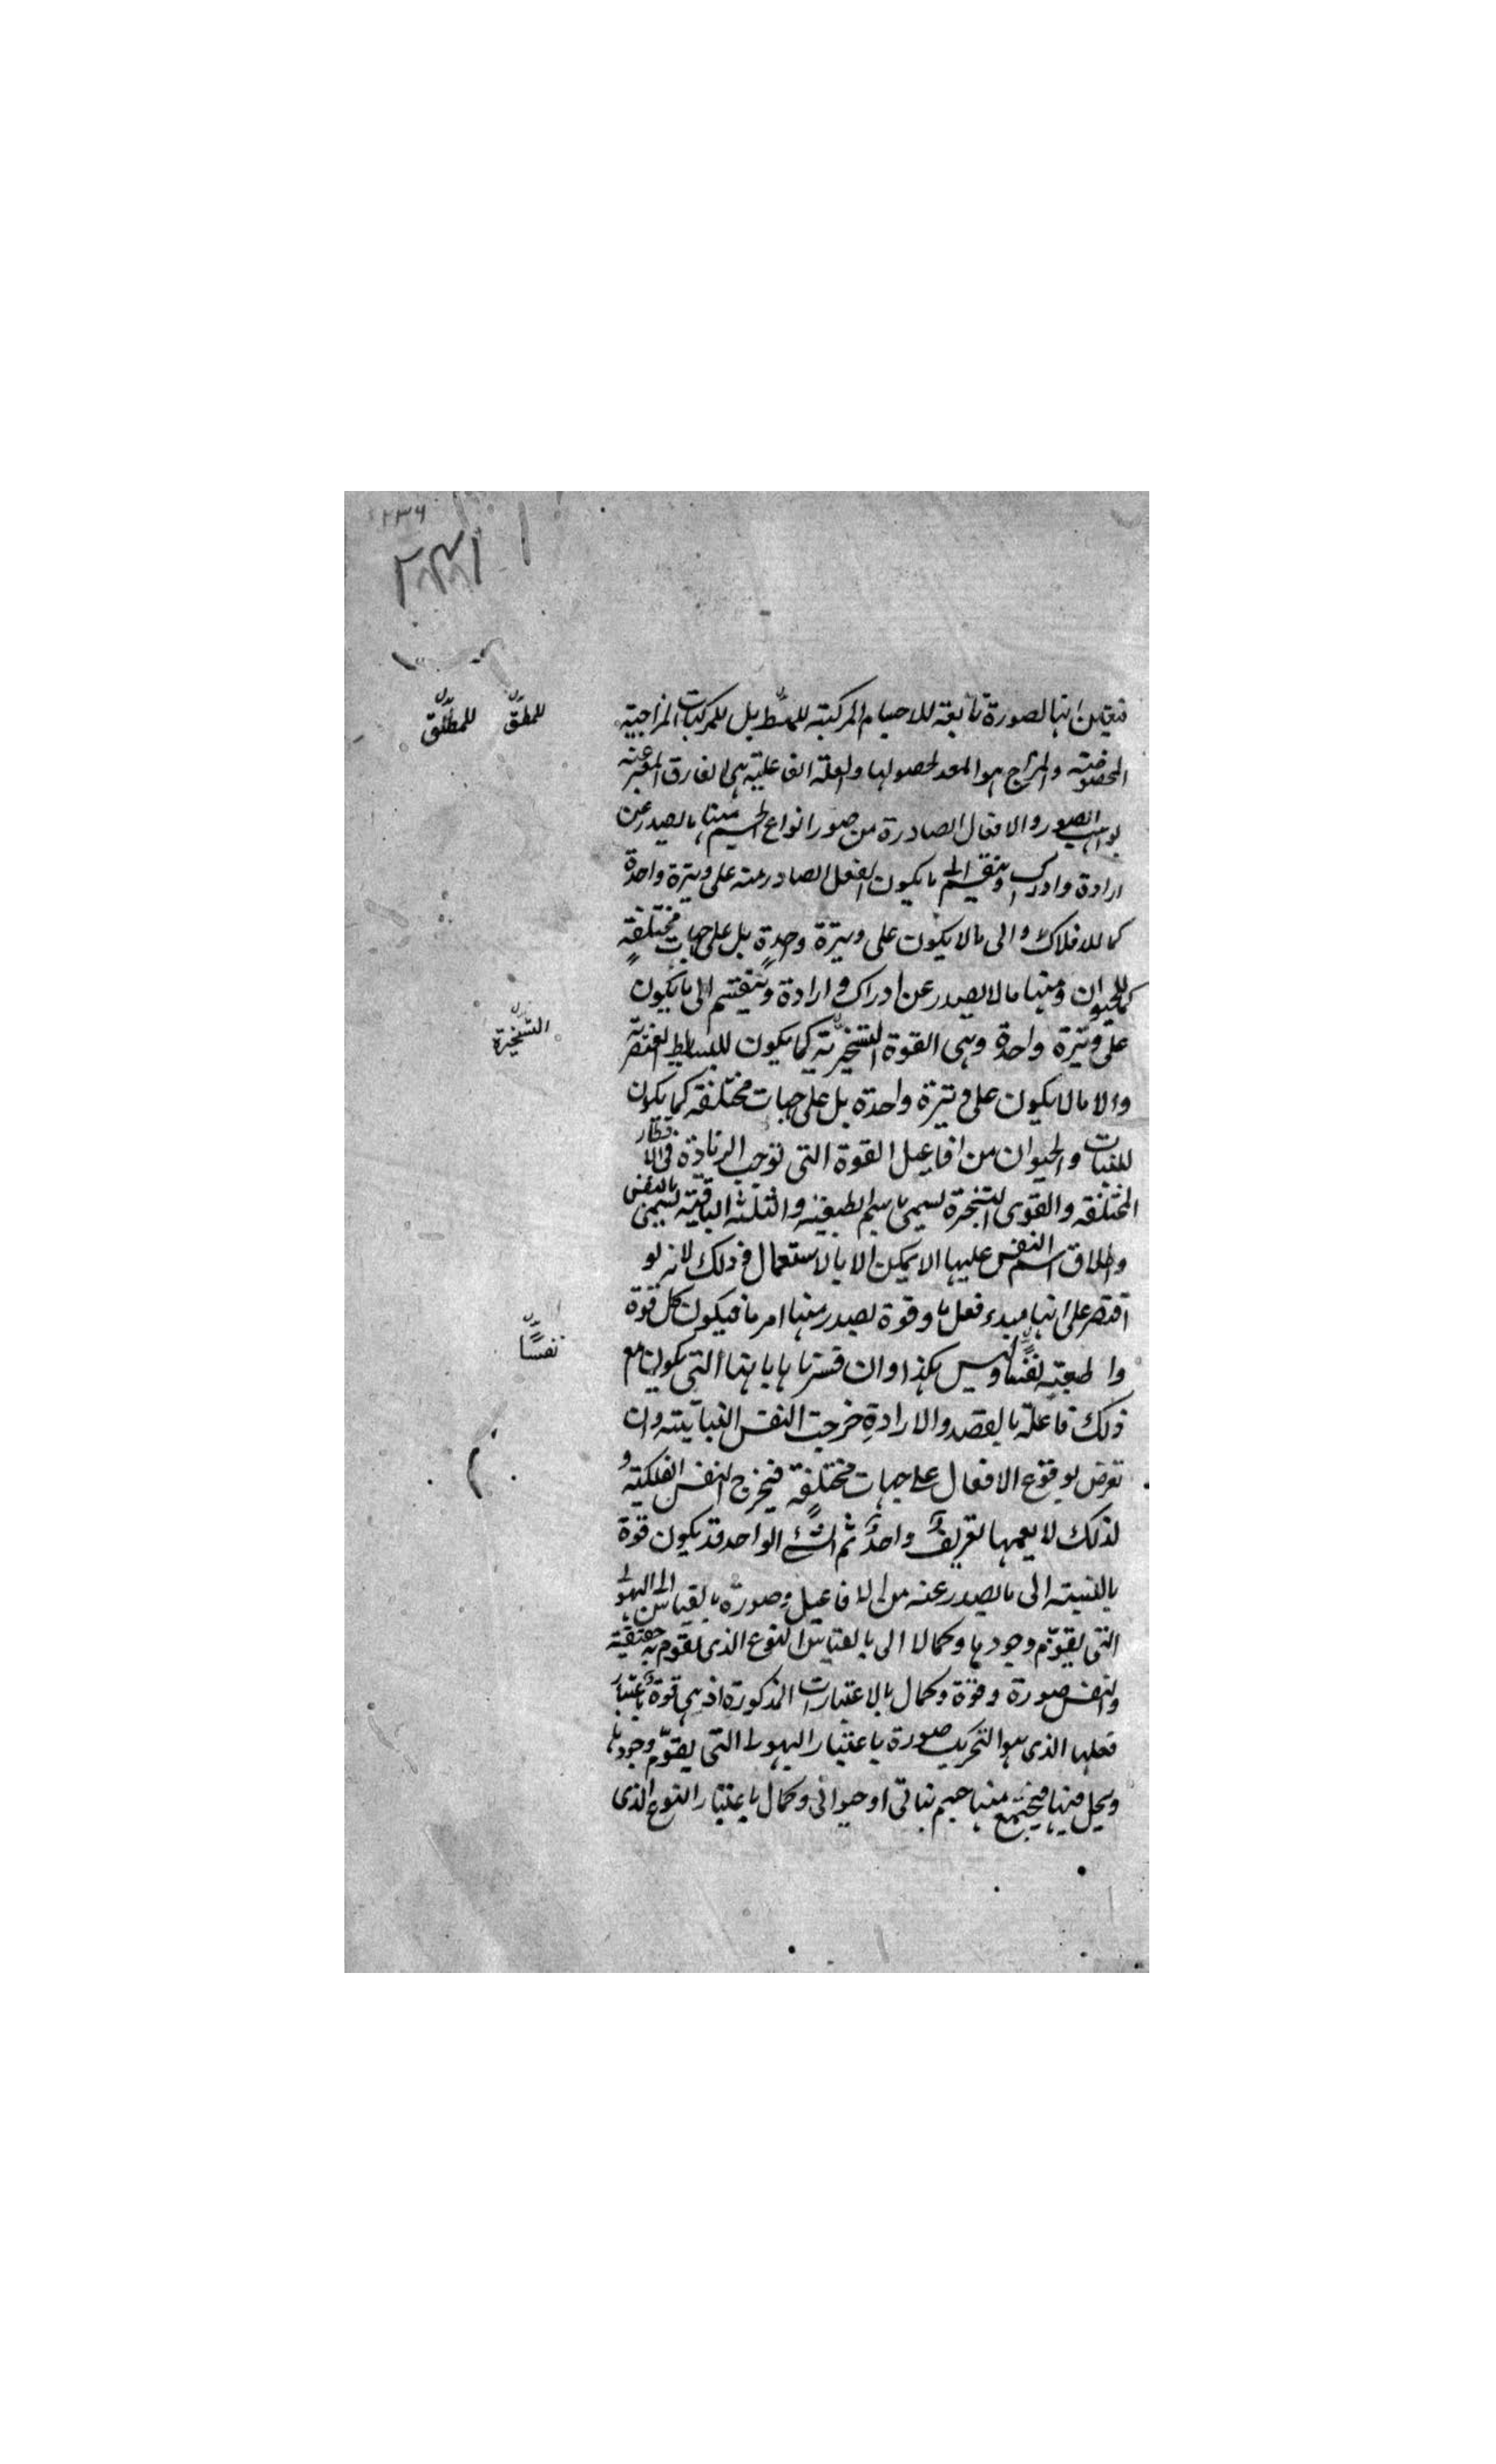 ٢٣٦
للمطلق
للمطلق
فتعين انها لصورة تابعة للاجسام المركبة للمط بل للمركبات المزاجية
المخصوصة والمزاج هو المعد لحصولها والعلة الفاعلية هى الفارق المعبر عنه
بواهب الصور والافعال الصادرة من صور انواع الجسم منها ما يصدر عن
ارادة وادراك وينقسم الى ما يكون الفعل الصادر منه على وتيرة واحدة
كما للافلاك والى ما لا يكون على وتيرة واحدة بل على جهات مختلفة
كما للحيوان ومنها ما لا يصدر عن ادراك و ارادة وينقسم الى ما يكون
على وتيرة واحدة وهى القوة التسخيرية كما يكون للبسايط العنصرية
التسخيرة
والا ما لا يكون على وتيرة واحدة بل على جهات مختلفة كما يكون
للنبات والحيوان من افاعيل القوة التى توجب الزيادة فى الاقطار
المختلفة والقوى التسخرة يسمى باسم الطبيعة والثلثة الباقية يسمى بالنفس
واطلاق اسم النفس عليها الا يمكن الا بالاستعمال فى ذلك لانه لو
اقتصر على انها مبدء فعل ما وقوة يصدر منها امر ما فيكون كل قوة
وا طبيعة نفسا وليس هكذا وان فسرناها بانها التى يكون مع
نفسًا
ذلك فاعلة بالقصد والارادة خرجت النفس النباتية وان
تعرض لوقوع الافعال على جهات مختلفة فيخرج النفس الفلكية و
لذلك لا يعمها تعريف واحد ثم الشئ الواحد قد يكون قوة
بالنسبة الى ما يصدر عنه من الافاعيل وصورة بالقياس الى الهيولى
التى يقوم وجودها وكمالا الى بالقياس النوع الذى يقوم به حقيقة
والنفس صورة وقوة وكمال بالاعتبارات المذكورة اذ هى قوة باعتبار
فعلها الذى هو التحريك صورة باعتبار الهيولى التى يقوم وجودها
ويحل فيها فيجتمع منها جسم نباتى او حيوانى وكمال باعتبار النوع الذى